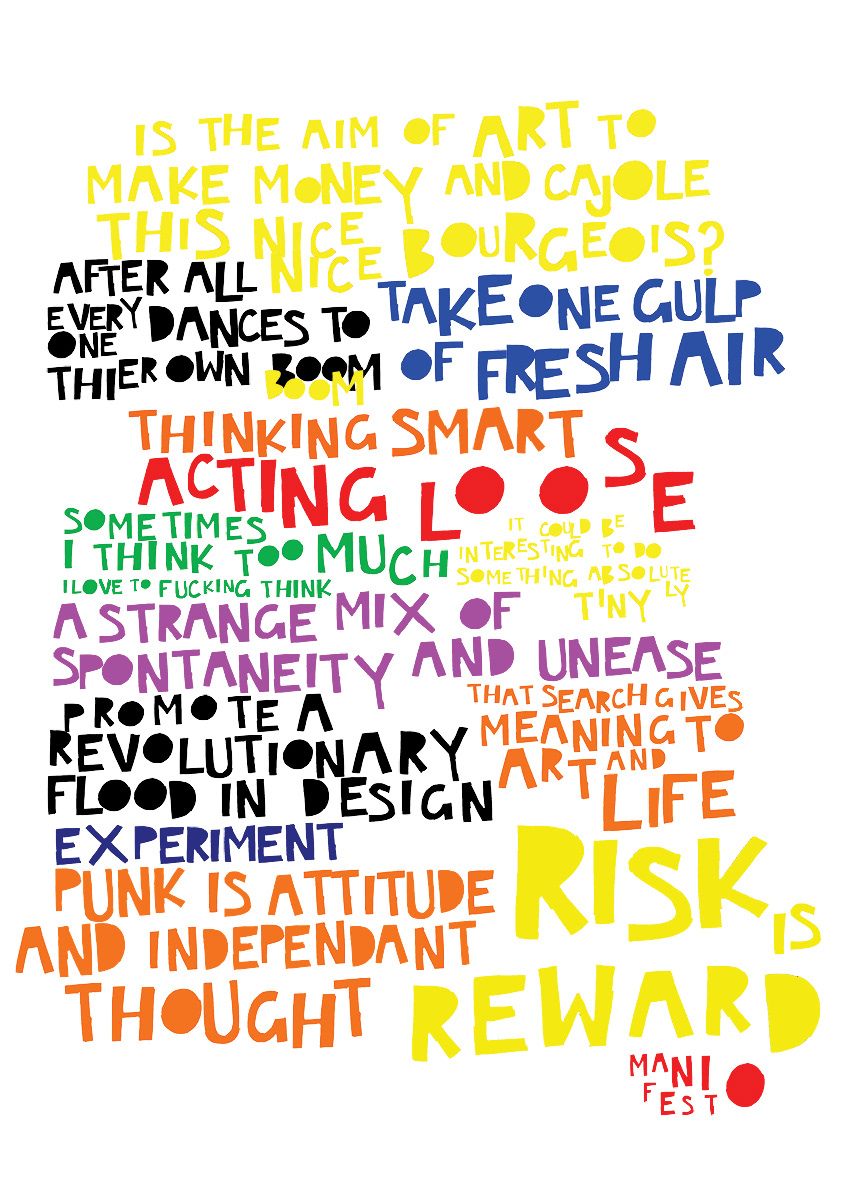 IS THE AIM OF ART TO
MAKE MONEY AND CAJOLE
THIS NICE BOURGEOIS?
NICE
AFTER ALL
EVERY DANCES TO
ONE
THIER OWN BOOM
BOOM
TAKE ONE GULP
OF FRESH AIR
THINKING SMART
ACTING LOOSE
SOMETIMES
I THINK TOO MUCH
I LOVE TO FUCKING THINK
IT COULD BE
INTERESTING TO DO
SOMETHING ABSOLUTE
LY
TINY
A STRANGE MIX OF
SPONTANEITY AND UNEASE
PROMOTE A
REVOLUTIONARY
FLOOD IN DESIGN
THAT SEARCH GIVES
MEANING TO
ART AND
LIFE
EXPERIMENT
PUNK IS ATTITUDE
AND INDEPENDANT
THOUGHT
RISK IS
REWARD
MANI
FESTO